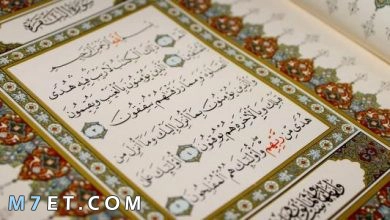 بِسْمِ اللَّهِ الرَّحْمَٰنِ الرَّحِيمِ
الٓمٓ ذَٰلِكَ الْكِتَابُ لَا رَيْبَ فِيهِ هُدًى
لِلْمُتَّقِينَ الَّذِينَ يُؤْمِنُونَ بِالْغَيْبِ وَيُقِيمُونَ
الصَّلَاةَ وَمِمَّا رَزَقْنَاهُمْ يُنْفِقُونَ
وَالَّذِينَ يُؤْمِنُونَ بِمَا أُنْزِلَ إِلَيْكَ وَمَا أُنْزِلَ مِنْ
قَبْلِكَ وَبِالْآخِرَةِ هُمْ يُوقِنُونَ أُولَٰئِكَ عَلَىٰ
هُدًى مِنْ رَبِّهِمْ وَأُولَٰئِكَ هُمُ الْمُفْلِحُونَ
M7ET.COM